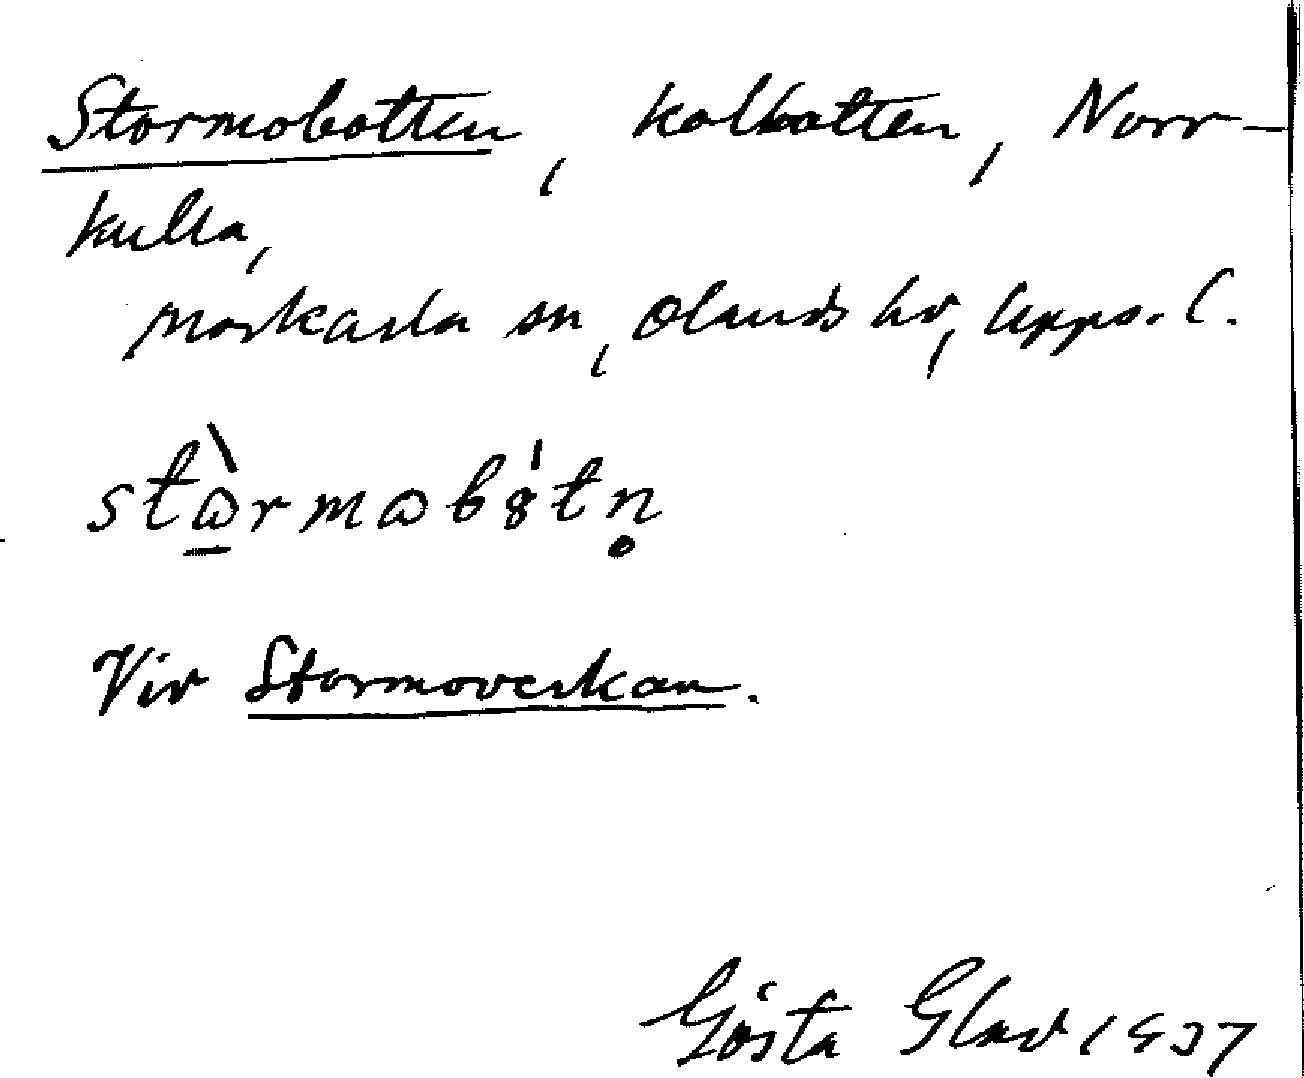 Stormobotten, kolbotten, Norr-
kulla,
Morkarla sn, Olands hd, Upps. l.
stɷ̀rmɷbȯtn̥
Vid Stormoverkan.
Gösta Glad 1937